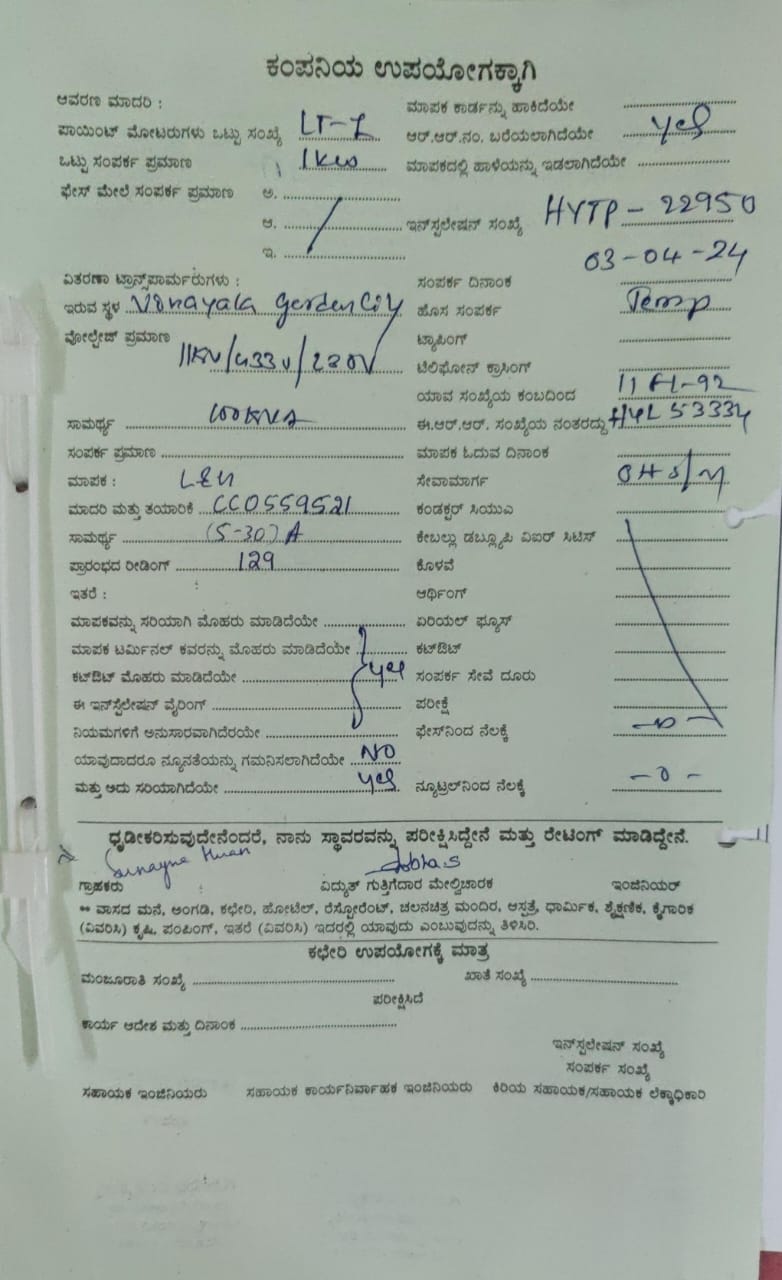 ಕಂಪನಿಯ ಉಪಯೋಗಕ್ಕಾಗಿ
ಆವರಣ ಮಾದರಿ :
ಮಾಪಕ ಕಾರ್ಡನ್ನು ಹಾಕಿದೆಯೇ
ಪಾಯಿಂಟ್ ಮೋಟರುಗಳು ಒಟ್ಟು ಸಂಖ್ಯೆ
ಆರ್.ಆರ್.ನಂ. ಬರೆಯಲಾಗಿದೆಯೇ yes
ಒಟ್ಟು ಸಂಪರ್ಕ ಪ್ರಮಾಣ 1kw
ಮಾಪಕದಲ್ಲಿ ಹಾಳೆಯನ್ನು ಇಡಲಾಗಿದೆಯೇ
ಫೇಸ್ ಮೇಲೆ ಸಂಪರ್ಕ ಪ್ರಮಾಣ ಅ.
ಆ.
ಇನ್‌ಸ್ಟಲೇಷನ್ ಸಂಖ್ಯೆ HYTP - 22950
ಇ.
03-04-24
ವಿತರಣಾ ಟ್ರಾನ್ಸ್‌ಫಾರ್ಮರುಗಳು :
ಸಂಪರ್ಕ ದಿನಾಂಕ
ಇರುವ ಸ್ಥಳ
ಹೊಸ ಸಂಪರ್ಕ Temp
ವೋಲ್ಟೇಜ್ ಪ್ರಮಾಣ 11KV/433V/230V
ಟ್ಯಾಪಿಂಗ್
ಟೆಲಿಫೋನ್ ಕ್ರಾಸಿಂಗ್
ಯಾವ ಸಂಖ್ಯೆಯ ಕಂಬದಿಂದ
ಸಾಮರ್ಥ್ಯ 100KVA
ಈ.ಆರ್.ಆರ್. ಸಂಖ್ಯೆಯ ನಂತರದ್ದು HYL53334
ಸಂಪರ್ಕ ಪ್ರಮಾಣ
ಮಾಪಕ ಓದುವ ದಿನಾಂಕ
ಮಾಪಕ :
ಸೇವಾಮಾರ್ಗ
ಮಾದರಿ ಮತ್ತು ತಯಾರಿಕೆ CC0559521
ಕಂಡಕ್ಟರ್ ಸಿಯುಎ
ಸಾಮರ್ಥ್ಯ (5-30)A
ಕೇಬಲ್ಲು ಡಬ್ಲ್ಯೂಪಿ ವಿಐರ್ ಸಿಟಿಸ್
ಪ್ರಾರಂಭದ ರೀಡಿಂಗ್ 129
ಕೊಳವೆ
ಇತರೆ :
ಆರ್ಥಿಂಗ್
ಮಾಪಕವನ್ನು ಸರಿಯಾಗಿ ಮೊಹರು ಮಾಡಿದೆಯೇ
ಏರಿಯಲ್ ಫ್ಯೂಸ್
ಮಾಪಕ ಟರ್ಮಿನಲ್ ಕವರನ್ನು ಮೊಹರು ಮಾಡಿದೆಯೇ
ಕಟ್‌ಔಟ್
ಕಟ್‌ಔಟ್ ಮೊಹರು ಮಾಡಿದೆಯೇ yes
ಸಂಪರ್ಕ ಸೇವೆ ದೂರು
ಈ ಇನ್‌ಸ್ಟಲೇಷನ್ ವೈರಿಂಗ್
ಪರೀಕ್ಷೆ
ನಿಯಮಗಳಿಗೆ ಅನುಸಾರವಾಗಿದೆರಯೇ
ಫೇಸ್‌ನಿಂದ ನೆಲಕ್ಕೆ
ಯಾವುದಾದರೂ ನ್ಯೂನತೆಯನ್ನು ಗಮನಿಸಲಾಗಿದೆಯೇ NO
ಮತ್ತು ಅದು ಸರಿಯಾಗಿದೆಯೇ yes
ನ್ಯೂಟ್ರಲ್‌ನಿಂದ ನೆಲಕ್ಕೆ - 0 -
ಧೃಡೀಕರಿಸುವುದೇನೆಂದರೆ, ನಾನು ಸ್ಥಾವರವನ್ನು ಪರೀಕ್ಷಿಸಿದ್ದೇನೆ ಮತ್ತು ರೇಟಿಂಗ್ ಮಾಡಿದ್ದೇನೆ.
ಗ್ರಾಹಕರು ವಿದ್ಯುತ್ ಗುತ್ತಿಗೆದಾರ ಮೇಲ್ವಿಚಾರಕ ಇಂಜಿನಿಯರ್
** ವಾಸದ ಮನೆ, ಅಂಗಡಿ, ಕಛೇರಿ, ಹೋಟೆಲ್, ರೆಸ್ಟೋರೆಂಟ್, ಚಲನಚಿತ್ರ ಮಂದಿರ, ಆಸ್ಪತ್ರೆ, ಧಾರ್ಮಿಕ, ಶೈಕ್ಷಣಿಕ, ಕೈಗಾರಿಕ
(ವಿವರಿಸಿ) ಕೃಷಿ, ಪಂಪಿಂಗ್, ಇತರೆ (ವಿವರಿಸಿ) ಇದರಲ್ಲಿ ಯಾವುದು ಎಂಬುವುದನ್ನು ತಿಳಿಸಿರಿ.
ಕಛೇರಿ ಉಪಯೋಗಕ್ಕೆ ಮಾತ್ರ
ಮಂಜೂರಾತಿ ಸಂಖ್ಯೆ ಖಾತೆ ಸಂಖ್ಯೆ
ಪರೀಕ್ಷಿಸಿದೆ
ಕಾರ್ಯ ಆದೇಶ ಮತ್ತು ದಿನಾಂಕ
ಇನ್‌ಸ್ಟಲೇಷನ್ ಸಂಖ್ಯೆ
ಸಂಪರ್ಕ ಸಂಖ್ಯೆ
ಸಹಾಯಕ ಇಂಜಿನಿಯರು ಸಹಾಯಕ ಕಾರ್ಯನಿರ್ವಾಹಕ ಇಂಜಿನಿಯರು ಕಿರಿಯ ಸಹಾಯಕ/ಸಹಾಯಕ ಲೆಕ್ಕಾಧಿಕಾರಿ